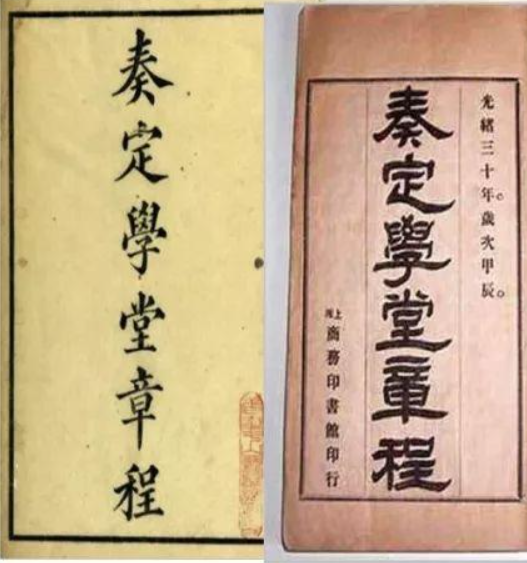 奏定學堂章程
光緒三十年歲次甲辰
奏定學堂章程
上海商務印書館印行